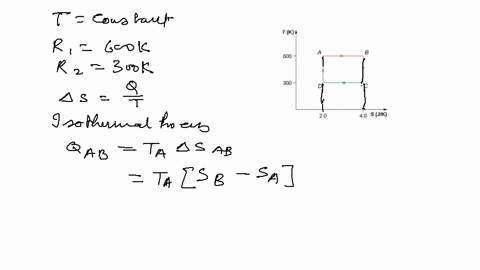 T = Constant
R₁ = 600K
R₂ = 300K
ΔS = Q/T
Isothermal
Q_AB = T_A ΔS_AB
= T_A [S_B − S_A]
T (K)
600
A
B
300
D
C
2.0
4.0
S (J/K)